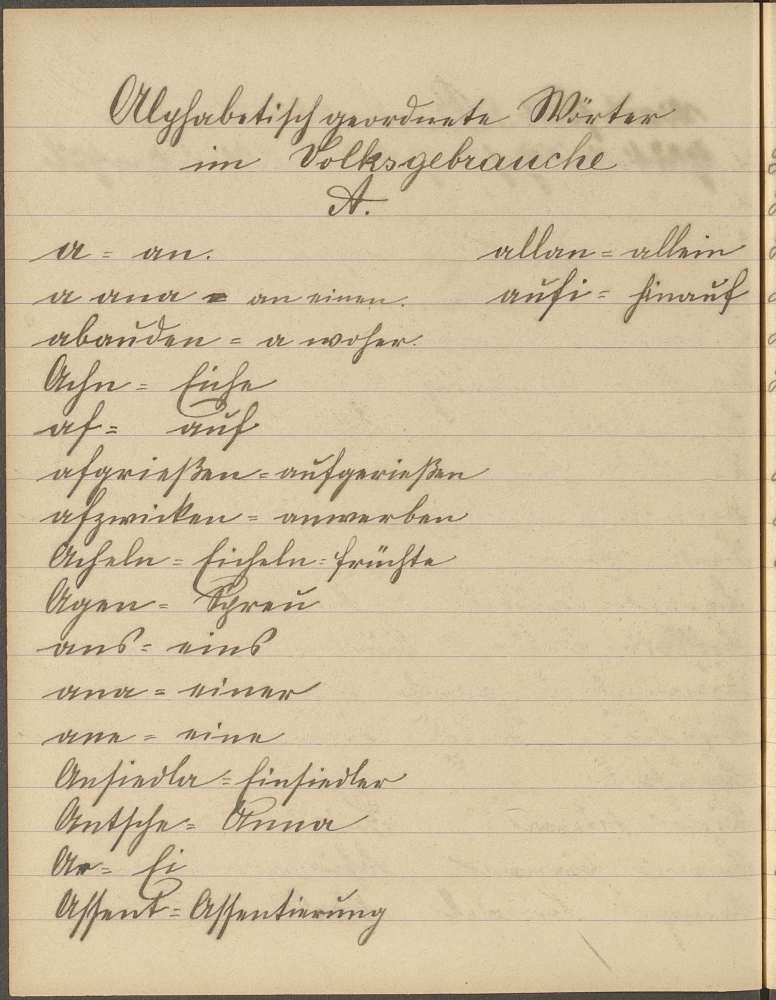 Alphabetisch geordnete Wörter
im Volksgebrauche
A.
a = an.
a ana = an einen.
abauden = a woher.
Achn = Eiche
af = auf
afgrießen = aufgerießen
afzwicken = anwerben
Acheln = Eicheln = früchte
Agen = Spreu
ans = eins
ana = einer
ane = eine
Ansiedla = Einsiedler
Antsche = Anna
Ar = Ei
Assent = Assentierung
allan = allein
aufi = hinauf